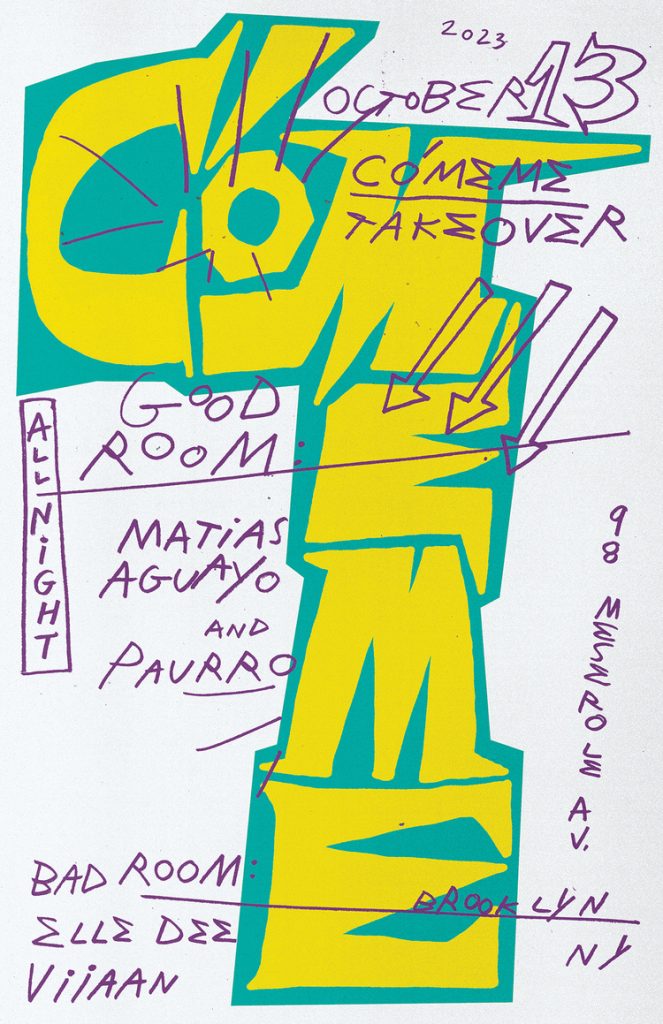 2023
OCTOBER 13
CÓMEME
TAKEOVER
CÓMEME
GOOD
ROOM:
ALL NiGHT
MATiAS
AGUAYO
AND
PAURRO
98 MESEROLE AV.
BAD ROOM:
ELLE DEE
ViiAAN
BROOKLYN
NY